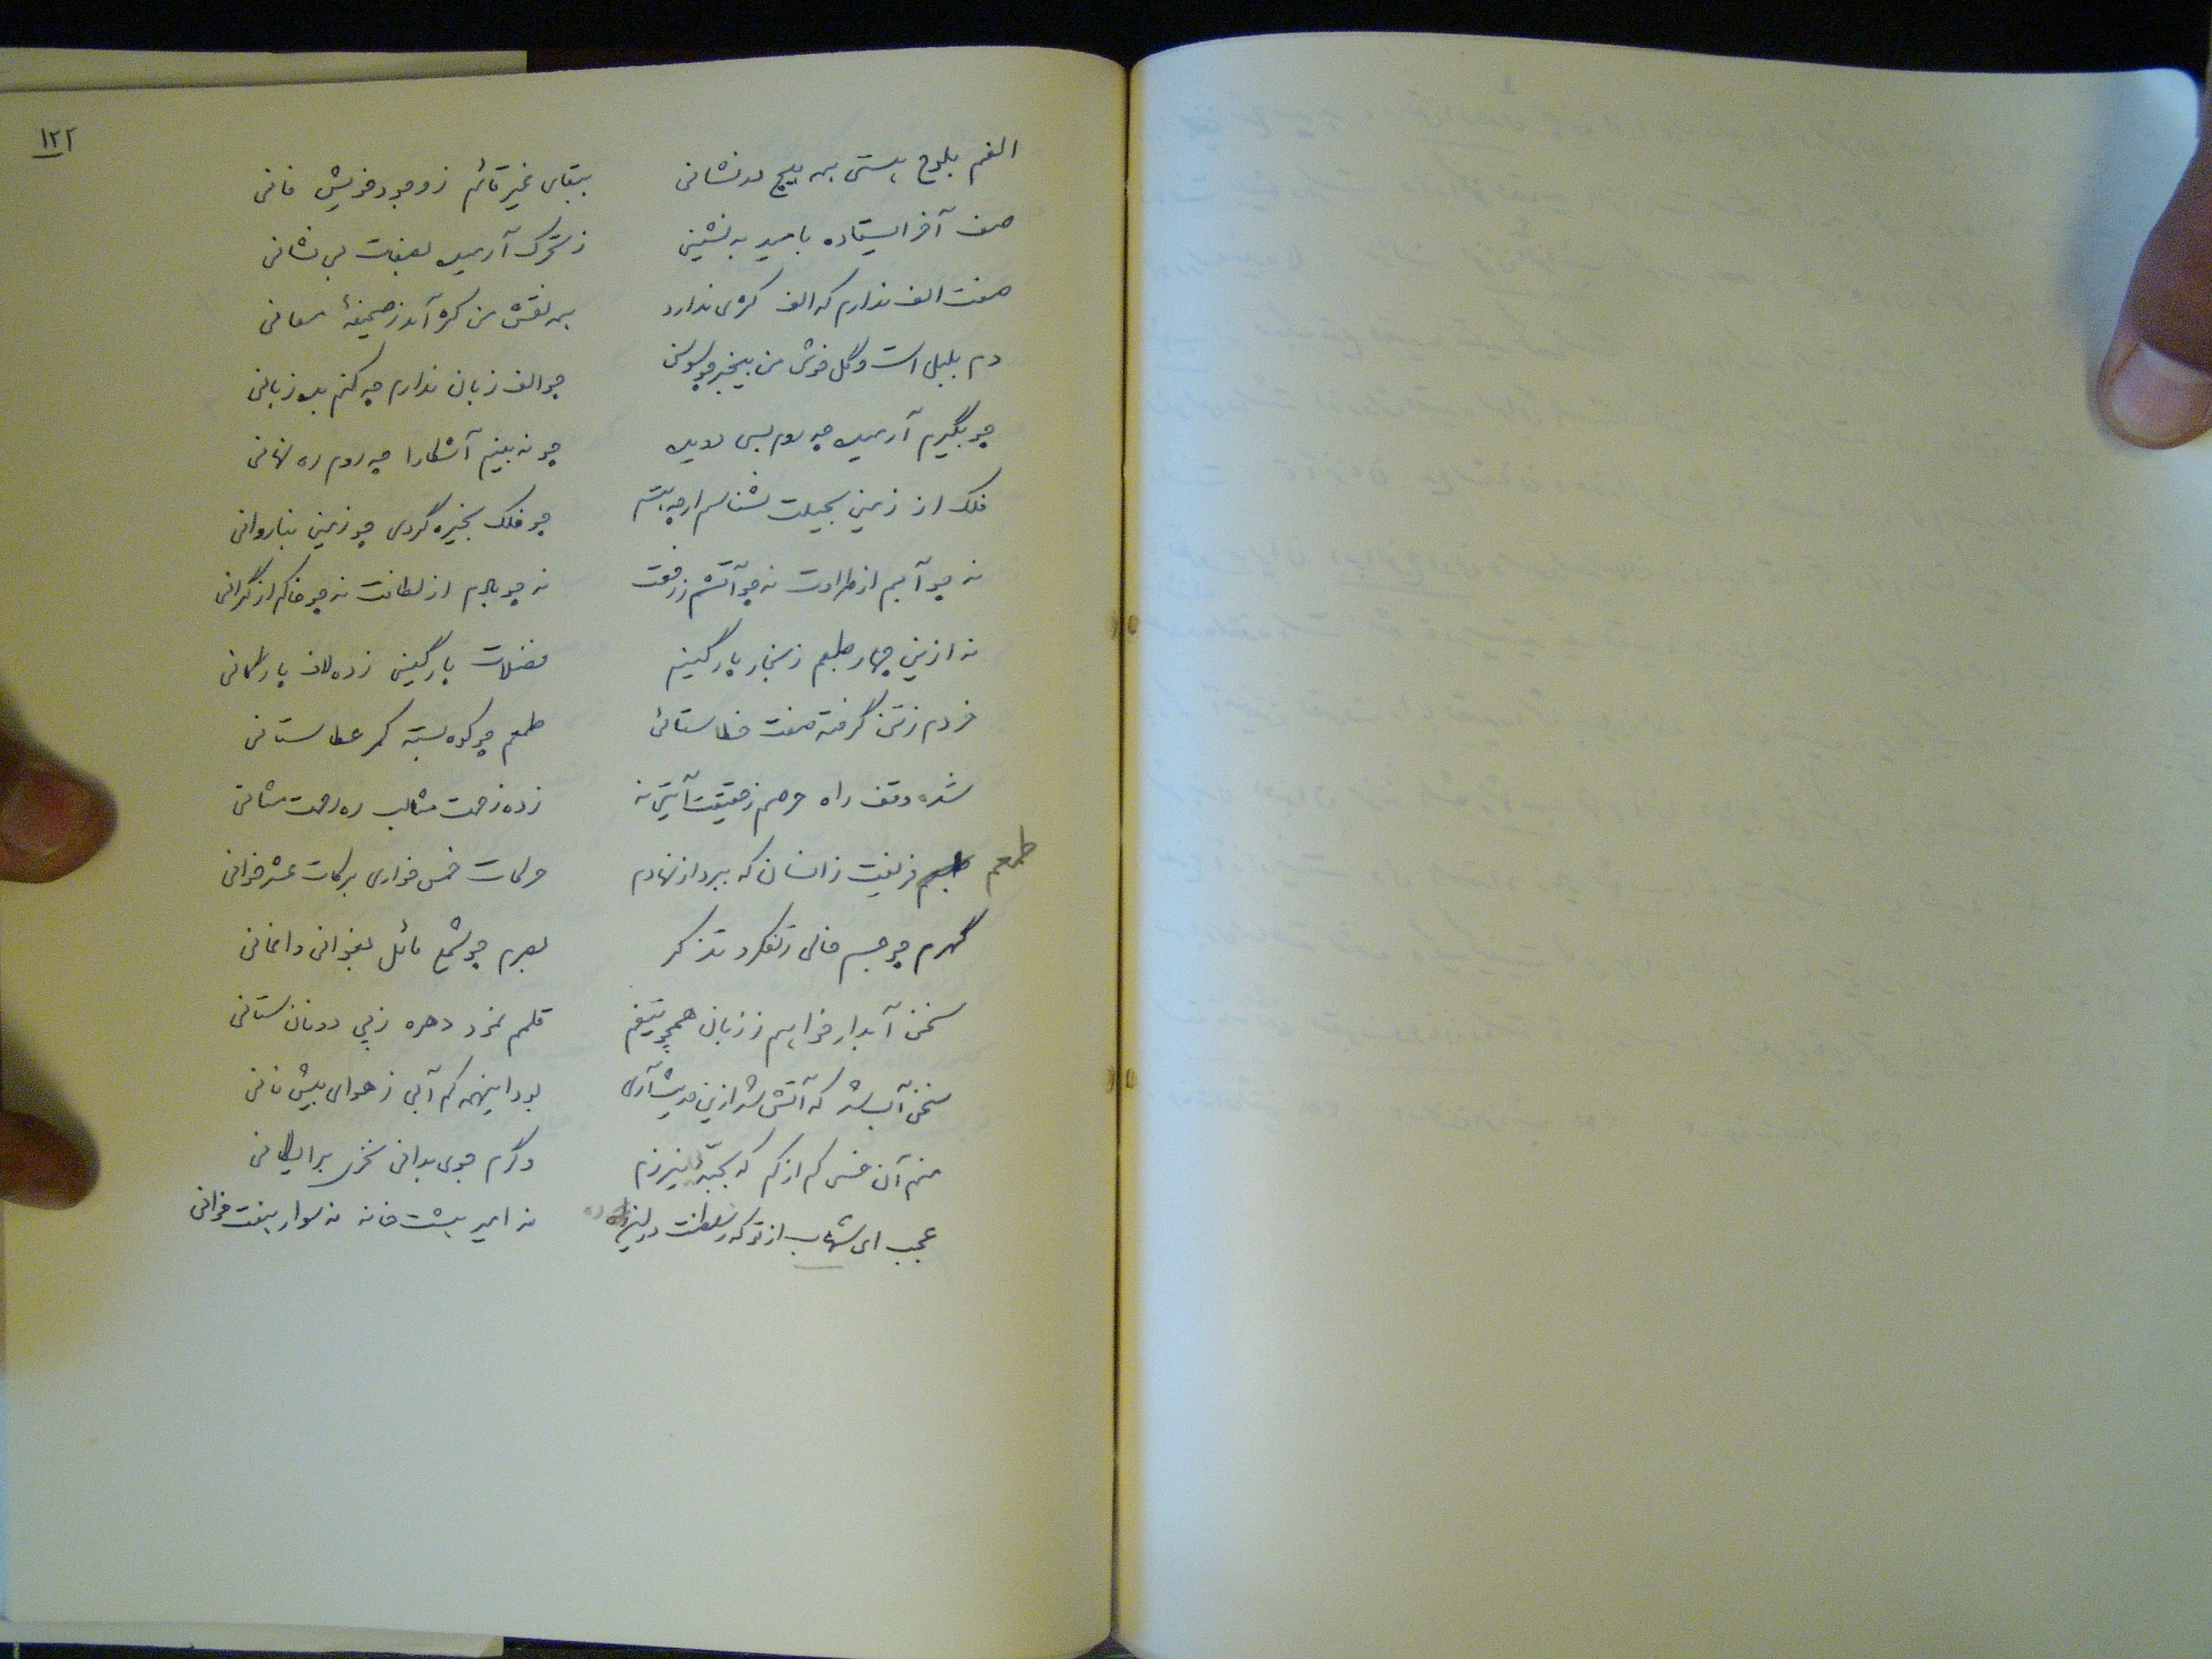 ۱۲۲
الفم بلوح هستی همه هیچ در نشانی ببقای غیر قائم ز وجود خویش فانی
صف آخر ایستاده بامید به نشینی ز تحرک آرمیده بصفات بی نشانی
صفت الف ندارم که الف کژی ندارد همه نقش من کژ آمد ز صحیفهٔ معانی
دم بلبل است و گل خوش من بیخبر چو سوسن چو الف زبان ندارم چه کنم بده زبانی
چو بگیرم آرمیده چه دوم بسی دویده چو نه بینم آشکارا چه روم ره نهانی
فلک از زمین بحیلت نشناسم ارچه هستم چو فلک بخیره گردی چو زمین بناروانی
نه چو آبم از طراوت نه چو آتشم ز رفعت نه چو بادم از لطافت نه چو خاکم از گرانی
نه ازین چهار طبعم ز بخار پارگینم فضلات پارگینی زده لاف پارگانی
خردم ز تن گرفته صفت خطا ستانی طمعم چو کوه بسته کمر عطا ستانی
شده وقف راه حرصم ز حقیقت آیتی نه زده زحمت مثالب ره رحمت مثانی
طمعم فریفت زانسان که ببرد از نهادم حرکات خمس خواری برکات عشر خوانی
گهرم چو جسم خالی ز تفکر و تذکر بصرم چو شمع مائل بغوانی و اغانی
سخن آبدار خواهم ز زبان همچو تیغم قلمم نمزد دهره ز پی دو نان ستانی
سخن آب شد که آتش شد ازین حدیث آری بود اینهمه کم آبی ز هوای بیش نانی
منم آن خس کم از کم که بحبهٔ نیرزم وگرم جوی بدانی نخری برایگانی
عجب ای شهاب از تو که ز سلطنت نه امیر هشت خانه نه سوار هفت خوانی